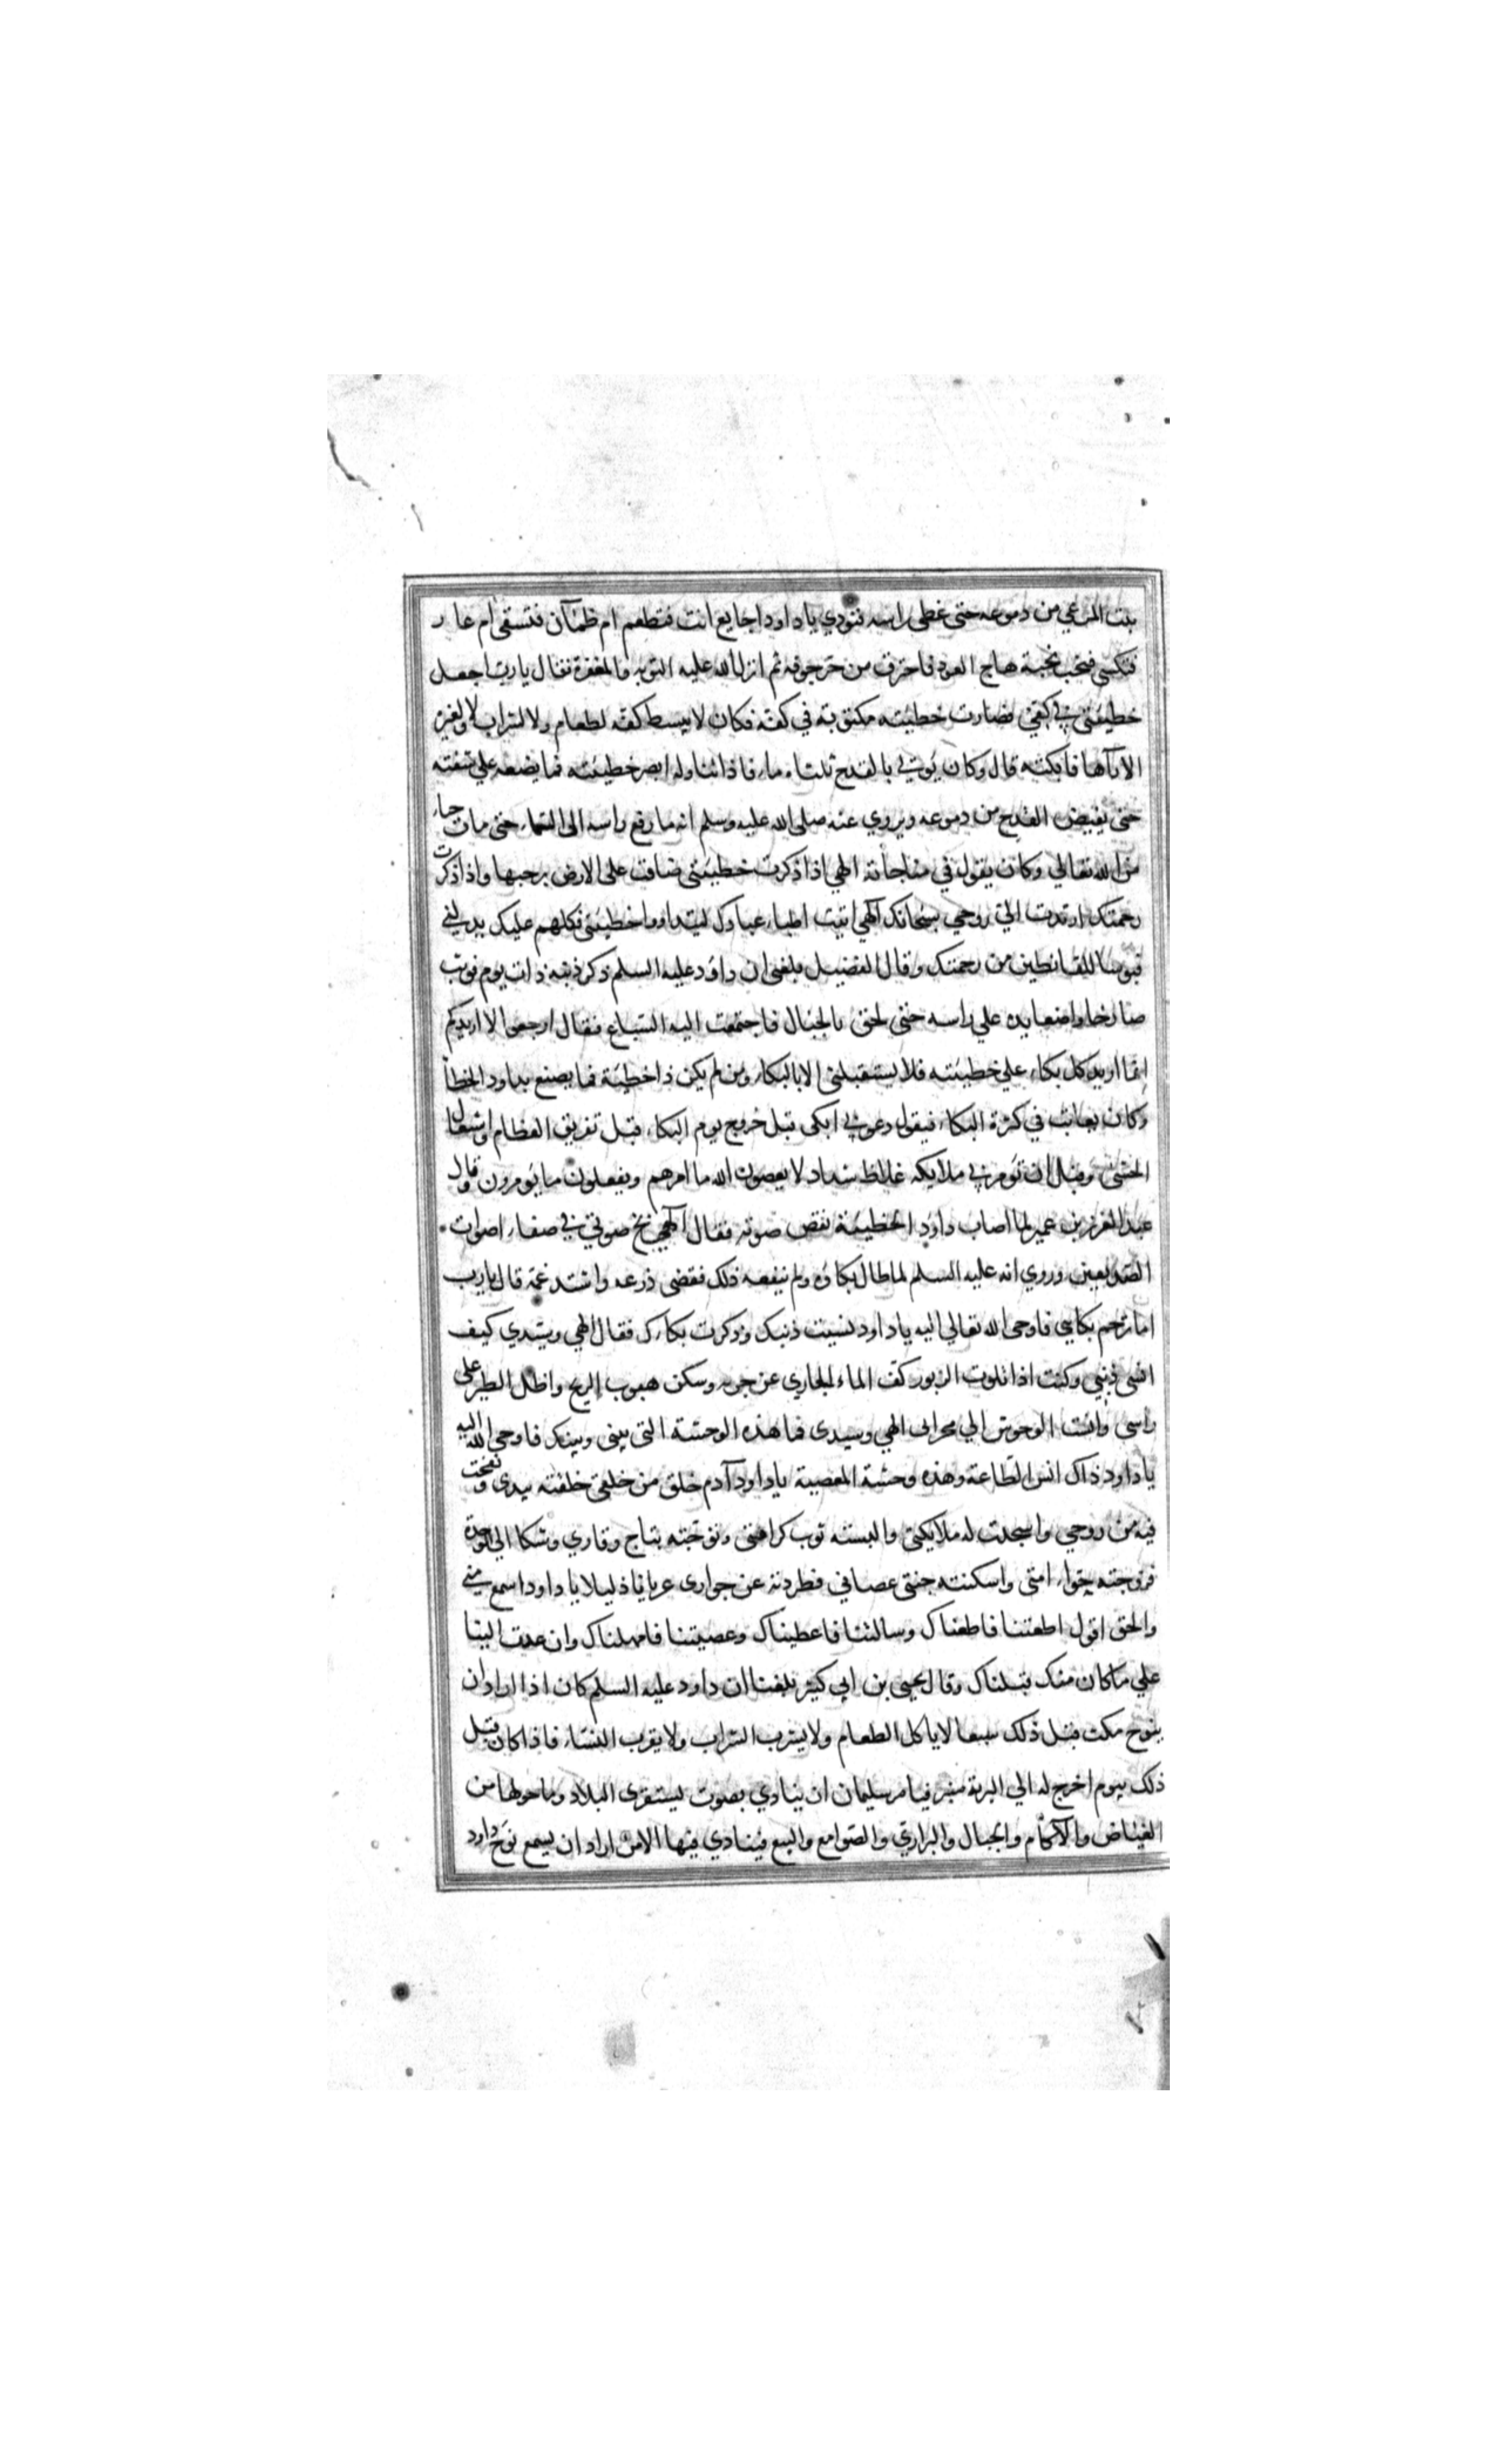 نبت المرعي من دموعه حتى غطى راسه فنودي يا داود اجايع انت فتطعم ام ظمآن فتسقى ام عار
فتكسى فنحب نحبة هاج العود فاحترق من حر جوفه ثم انزل الله عليه التوبه والمغفرة فقال يا رب اجعل
خطيئتي في كفي فصارت خطيئته مكتوبة في كفه فكان لا يبسط كفه لطعام ولا لشراب ولا لغيره
الا رآها فابكته قال وكان يؤتي بالقدح ثلثاه ماء فاذا تناوله ابصر خطيئته فما يضعه علي شفته
حتى يفيض القدح من دموعه ويروي عنه صلى الله عليه وسلم انه ما رفع راسه الى السماء حتى مات حياء
من الله تعالي وكان يقول في مناجاته الهي اذا ذكرت خطيئتي ضاقت على الارض برحبها واذا ذكرت
رحمتك ارتدت الي روحي سبحانك الهي اتيت اطباء عبادك ليداووا خطيئتي فكلهم عليك يدلني
فبوسا للقانطين من رحمتك وقال الفضيل بلغني ان داود عليه السلم ذكر ذنبه ذات يوم فوثب
صارخا واضعا يده علي راسه حتى لحق بالجبال فاجتمعت اليه السباع فقال ارجعوا لا اريدكم
انما اريد كل بكاء علي خطيئته فلا يستقبلني الا بالبكاء ومن لم يكن ذا خطيئة فما يصنع بداود الخطأ
وكان يعاتب في كثرة البكاء فيقول دعوني ابكى قبل خروج يوم البكاء قبل تفريق العظام واشعال
الحشى وقبل ان تؤمر بي ملايكه غلاظ شداد لا يعصون الله ما امرهم ويفعلون ما يومرون وقال
عبد العزيز بن عمير لما اصاب داود الخطيئة نقص صوته فقال الهي بح صوتي في صفاء اصوات
الصديقين وروي انه عليه السلم لما طال بكاؤه ولم ينفعه ذلك فقضى ذرعه واشتد غمه قال يا رب
اما ترحم بكايي فاوحى الله تعالي اليه يا داود نسيت ذنبك وذكرت بكاءك فقال الهي وسيدي كيف
انسى ذنبي وكنت اذا تلوت الزبور كف الماء الجاري عن جريه وسكن هبوب الريح واظل الطير علي
راسى وانست الوحوش الي محرابى الهي وسيدى فما هذه الوحشة التى بينى وبينك فاوحي الله اليه
يا داود ذاك انس الطاعة وهذه وحشة المعصية يا داود آدم خلق من خلقى خلقته بيدى ونفخت
فيه من روحي واسجدت له ملايكتى والبسته ثوب كرامتى وتوجته بتاج وقاري وشكا الي الوحدة
فزوجته حواء امتى واسكنته جنتى عصاني فطردته عن جوارى عريانا ذليلا يا داود اسمع مني
والحق اقول اطعتنا فاطعناك وسالتنا فاعطيناك وعصيتنا فامهلناك وان عدت الينا
علي ما كان منك قبلناك وقال يحيى بن ابي كثير بلغنا ان داود عليه السلم كان اذا اراد ان
ينوح مكث قبل ذلك سبعا لا ياكل الطعام ولا يشرب الشراب ولا يقرب النساء فاذا كان قبل
ذلك بيوم اخرج له الي البرية منبر فيامر سليمان ان ينادي بصوت يستقرى البلاد وما حولها من
الغياض والآكام والجبال والبراري والصوامع والبيع فينادي فيها الا من اراد ان يسمع نوح داود